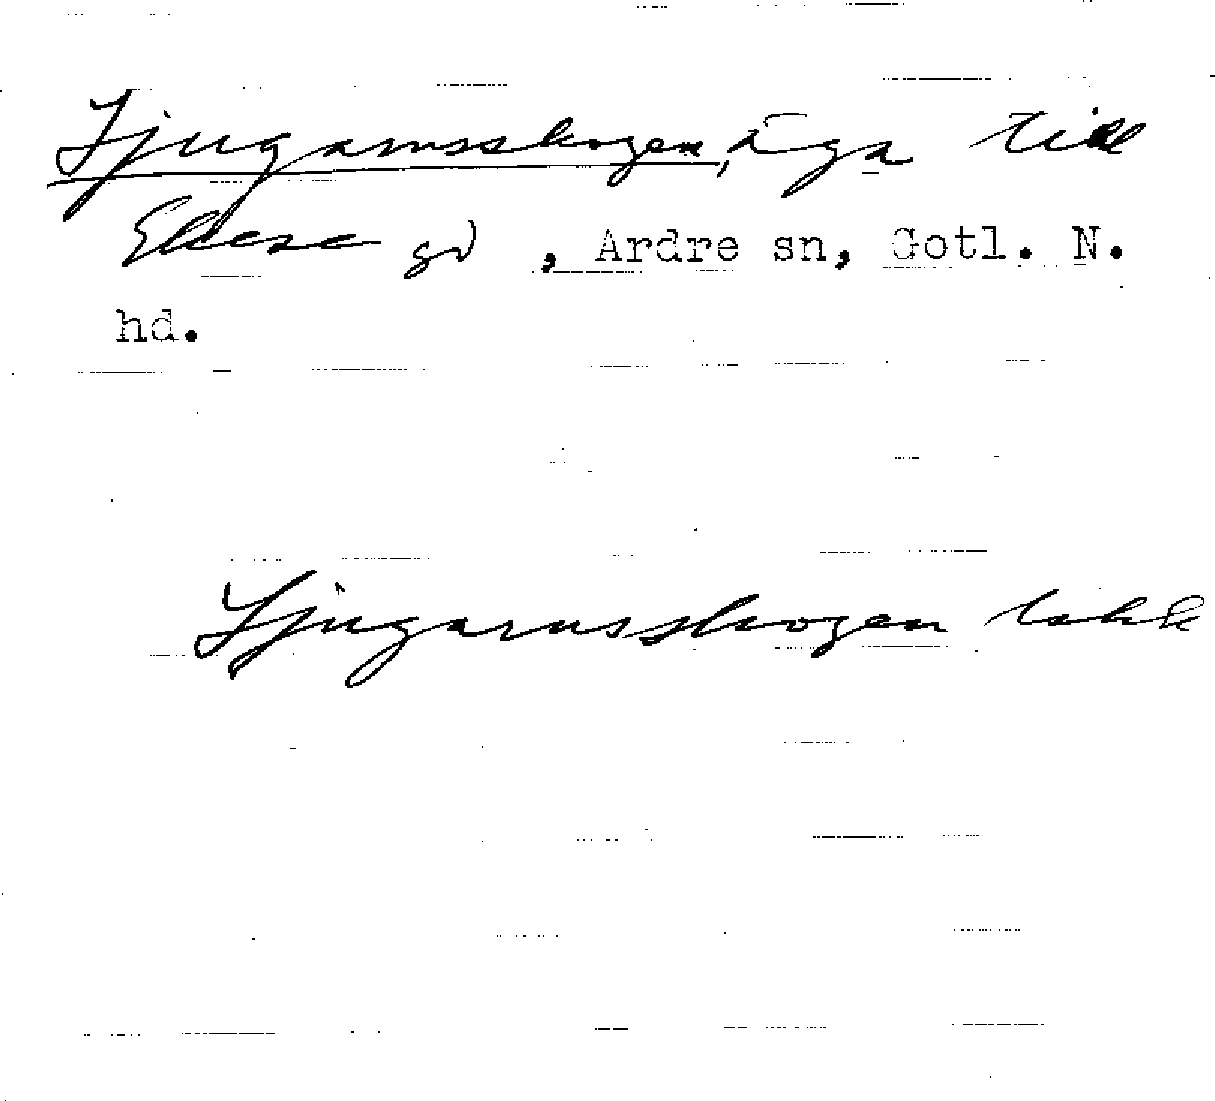 Ljugarnsskogen, äga till
Ekese gd , Ardre sn, Gotl. N.
hd.
Ljugarnsskogen